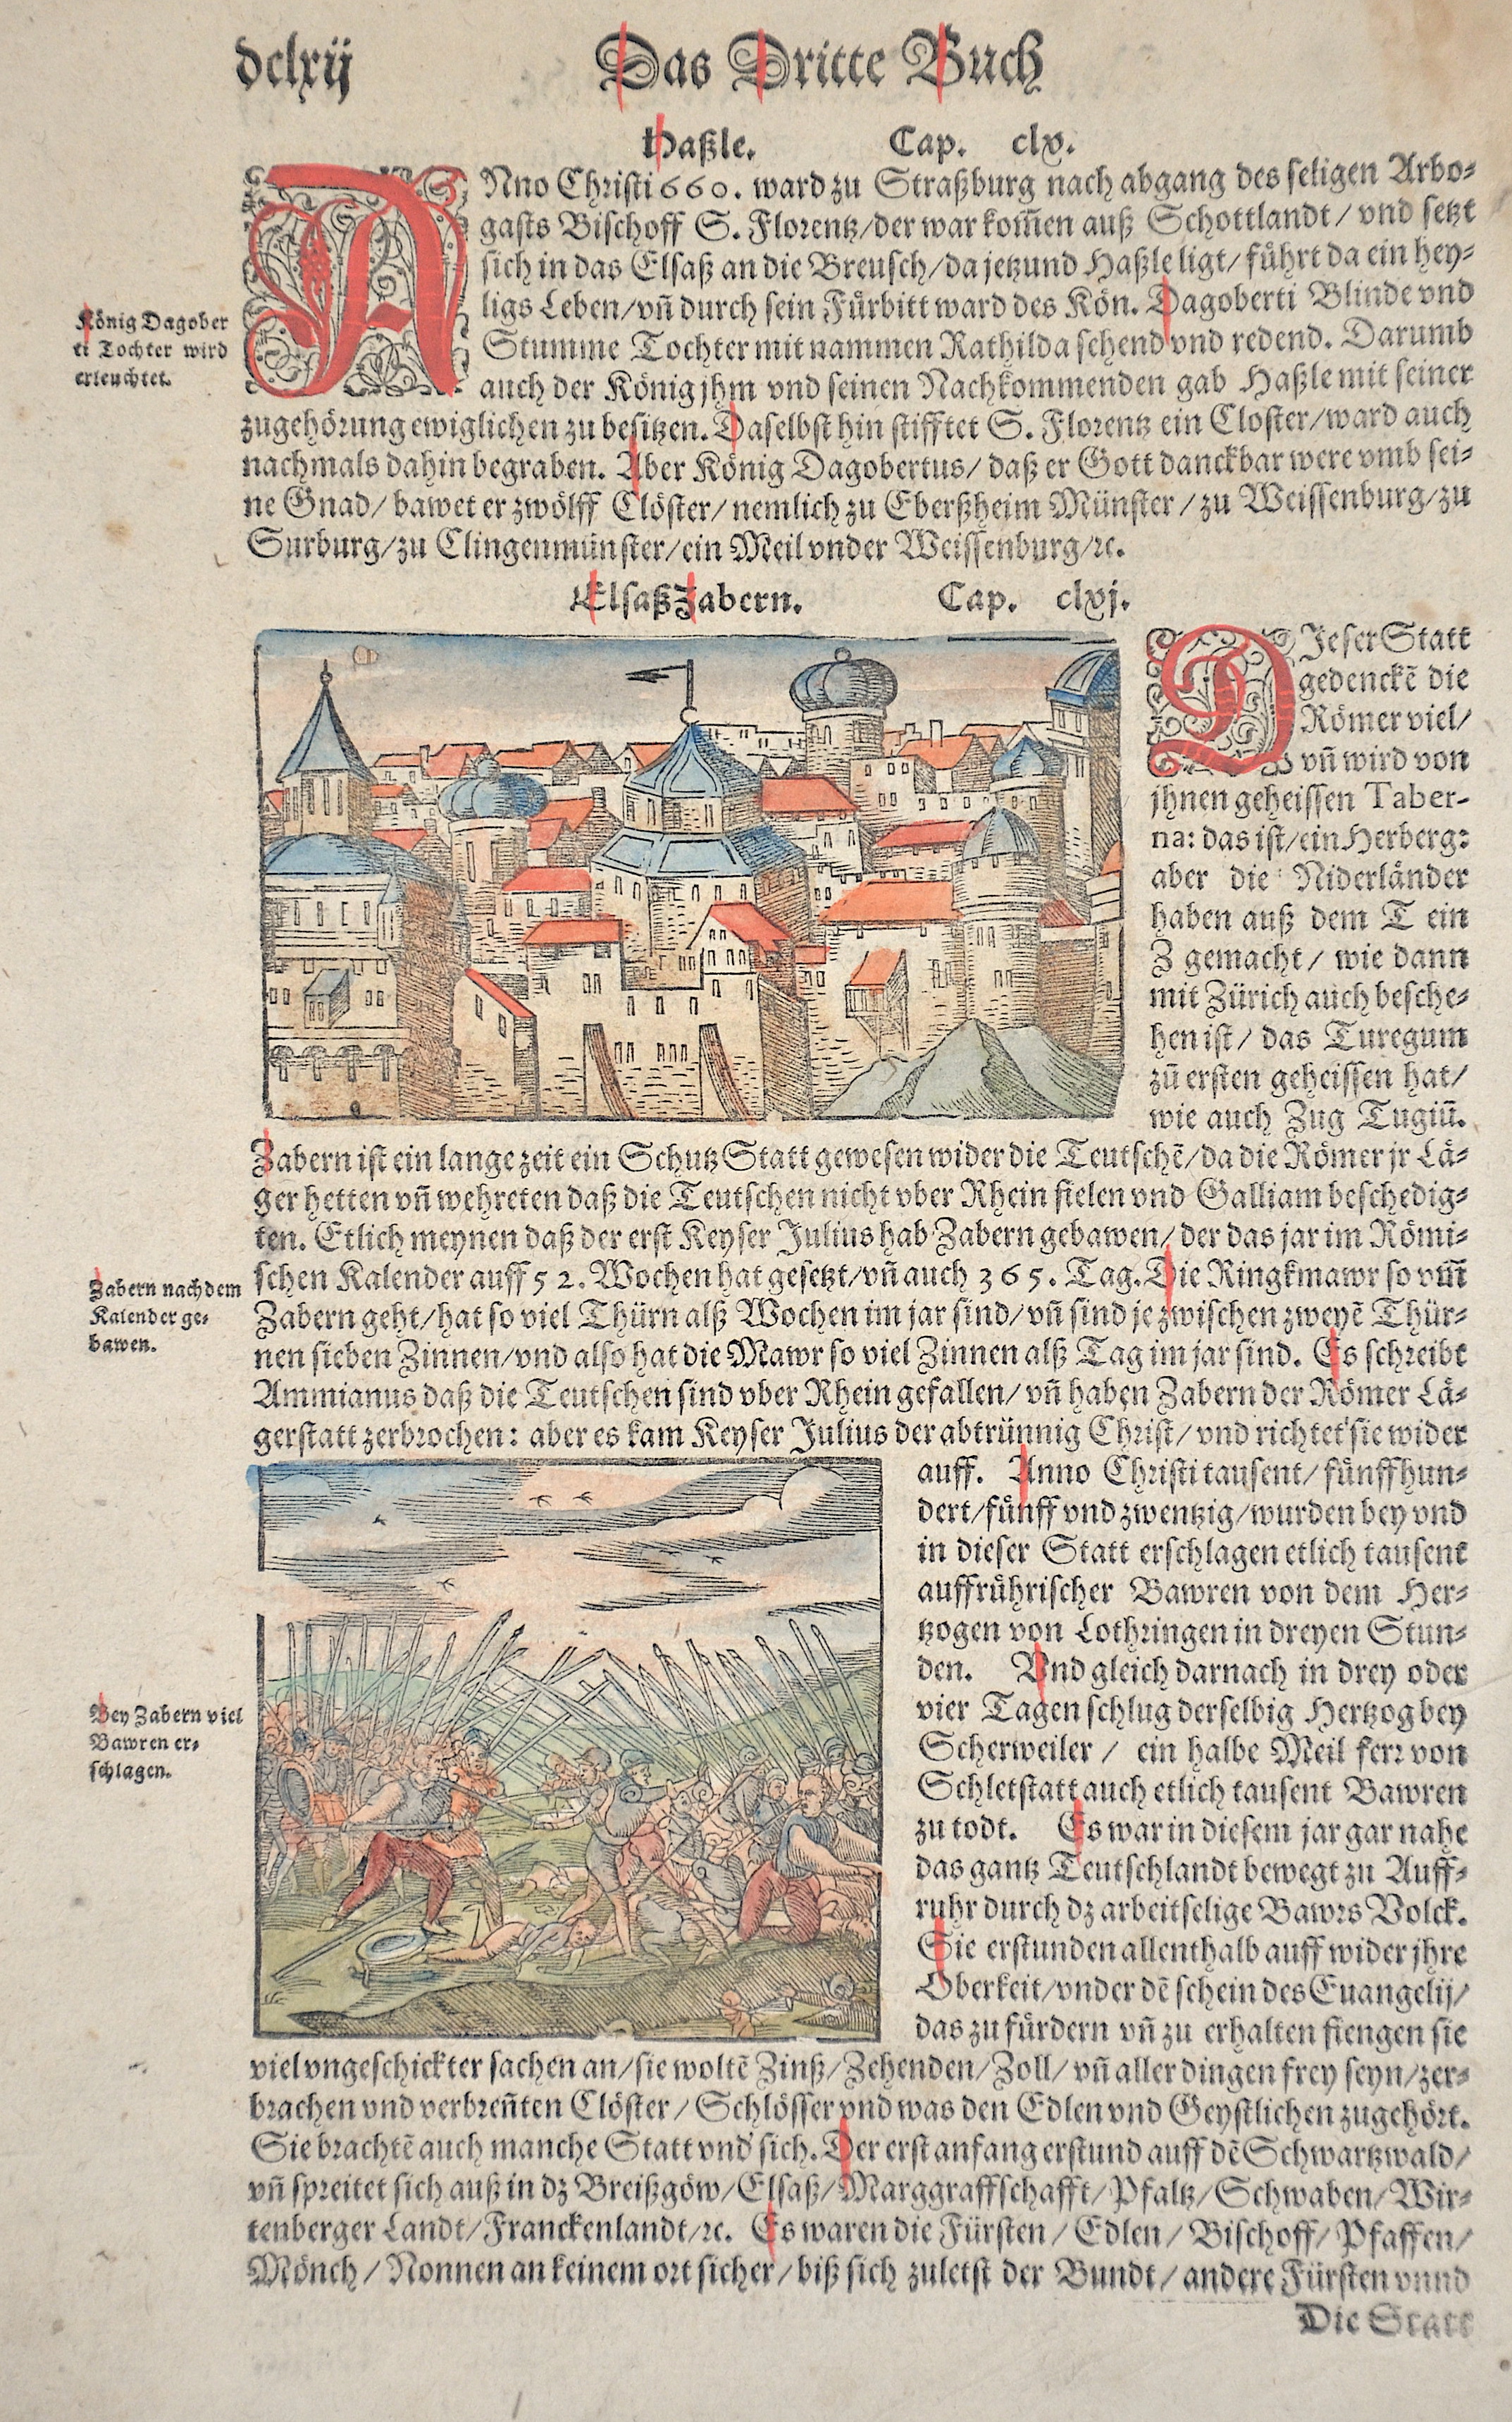 dclxij
Das Dritte Buch
Haßle. Cap. clx.
ANno Christi 660. ward zu Straßburg nach abgang des seligen Arbo-
gasts Bischoff S. Florentz/der war kom̃en auß Schottlandt/ vnd setzt
sich in das Elsaß an die Breusch/da jetzund Haßle ligt/ fůhrt da ein hey-
ligs Leben/vñ durch sein Fůrbitt ward des Kön. Dagoberti Blinde vnd
Stumme Tochter mit nammen Rathilda sehend vnd redend. Darumb
auch der König jhm vnd seinen Nachkommenden gab Haßle mit seiner
zugehörung ewiglichen zu besitzen. Daselbst hin stifftet S. Florentz ein Closter/ward auch
nachmals dahin begraben. Aber König Dagobertus/ daß er Gott danckbar were vmb sei-
ne Gnad/ bawet er zwölff Clöster/ nemlich zu Eberßheim Münster/ zu Weissenburg/zu
Surburg/zu Clingenmünster/ein Meil vnder Weissenburg/ꝛc.
König Dagober
ti Tochter wird
erleuchtet.
ElsaßZabern. Cap. clxj.
DJeser Statt
gedenckẽ die
Römer viel/
vñ wird von
jhnen geheissen Taber-
na: das ist/ein Herberg:
aber die Niderländer
haben auß dem T ein
Z gemacht/ wie dann
mit Zürich auch besche-
hen ist/ das Turegum
zũ ersten geheissen hat/
wie auch Zug Tugiũ.
Zabern ist ein lange zeit ein Schutz Statt gewesen wider die Teutschẽ/da die Römer jr Lä-
ger hetten vñ wehreten daß die Teutschen nicht vber Rhein fielen vnd Galliam beschedig-
ten. Etlich meynen daß der erst Keyser Julius hab Zabern gebawen/der das jar im Römi-
schen Kalender auff 52. Wochen hat gesetzt/vñ auch 365. Tag. Die Ringkmawr so vm̃
Zabern geht/hat so viel Thürn alß Wochen im jar sind/vñ sind je zwischen zweyẽ Thür-
nen sieben Zinnen/vnd also hat die Mawr so viel Zinnen alß Tag im jar sind. Es schreibt
Ammianus daß die Teutschen sind vber Rhein gefallen/ vñ haben Zabern der Römer Lä-
gerstatt zerbrochen: aber es kam Keyser Julius der abtrünnig Christ/ vnd richtet sie wider
Zabern nach dem
Kalender ge-
bawen.
auff. Anno Christi tausent/ fůnffhun-
dert/fůnff vnd zwentzig/wurden bey vnd
in dieser Statt erschlagen etlich tausent
auffrůhrischer Bawren von dem Her-
tzogen von Lothringen in dreyen Stun-
den. Vnd gleich darnach in drey oder
vier Tagen schlug derselbig Hertzog bey
Scherweiler/ ein halbe Meil ferr von
Schletstatt auch etlich tausent Bawren
zu todt. Es war in diesem jar gar nahe
das gantz Teutschlandt bewegt zu Auff-
ruhr durch dz arbeitselige Bawrs Volck.
Sie erstunden allenthalb auff wider jhre
Oberkeit/vnder dẽ schein des Euangelij/
das zu fůrdern vñ zu erhalten fiengen sie
Bey Zabern viel
Bawren er-
schlagen.
viel vngeschickter sachen an/sie woltẽ Zinß/Zehenden/Zoll/ vñ aller dingen frey seyn/zer-
brachen vnd verbreñten Clöster/ Schlösser vnd was den Edlen vnd Geystlichen zugehört.
Sie brachtẽ auch manche Statt vnd sich. Der erst anfang erstund auff dẽ Schwartzwald/
vñ spreitet sich auß in dz Breißgöw/Elsaß/Marggraffschafft/Pfaltz/Schwaben/Wir-
tenberger Landt/Franckenlandt/ꝛc. Es waren die Fürsten/ Edlen/ Bischoff/ Pfaffen/
Mönch/ Nonnen an keinem ort sicher/ biß sich zuletst der Bundt/ andere Fürsten vnnd
Die Statt